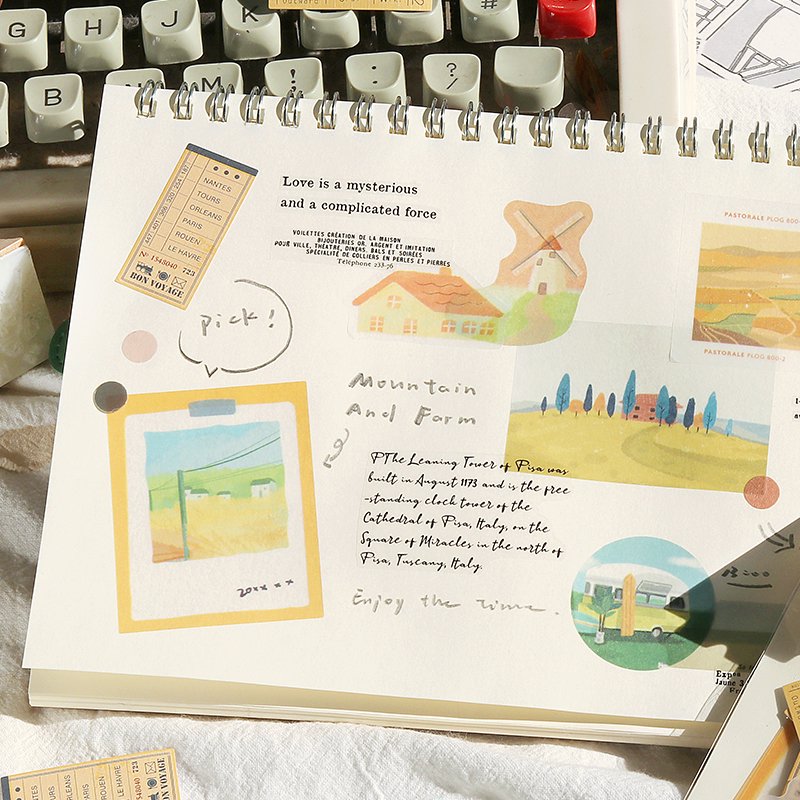 G H J K
B N M ! : ? #
NANTES
TOURS
ORLEANS
PARIS
ROUEN
LE HAVRE
447 401 368 320 254 187
Nº 1548040 723
BON VOYAGE
Love is a mysterious
and a complicated force
VOILETTES CRÉATION DE LA MAISON
BIJOUTERIES OR, ARGENT ET IMITATION
POUR VILLE, THEATRE, DINERS, BALS ET SOIRÉES
SPÉCIALITÉ DE COLLIERS EN PERLES ET PIERRES
Téléphone 233-76
PASTORALE PLOG 800-
PASTORALE PLOG 800-2
pick!
Mountain
And Farm
PThe Leaning Tower of Pisa was
built in August 1173 and is the free
-standing clock tower of the
Cathedral of Pisa, Italy, on the
Square of Miracles in the north of
Pisa, Tuscany, Italy.
20xx x x
Enjoy the time.
TOURS
ORLEANS
PARIS
ROUEN
LE HAVRE
1548040 723
BON VOYAGE